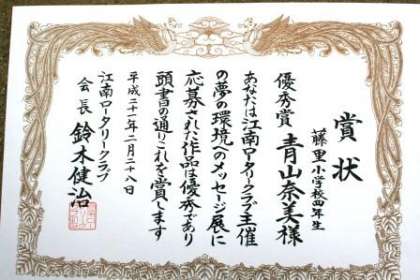 賞状
藤里小学校四年生
優秀賞 青山奈美様
あなたは江南ロータリークラブ主催
の夢の環境へのメッセージ展に
応募された作品は優秀であり
頭書の通りこれを賞します
平成二十一年二月二十八日
江南ロータリークラブ
会長 鈴木健治